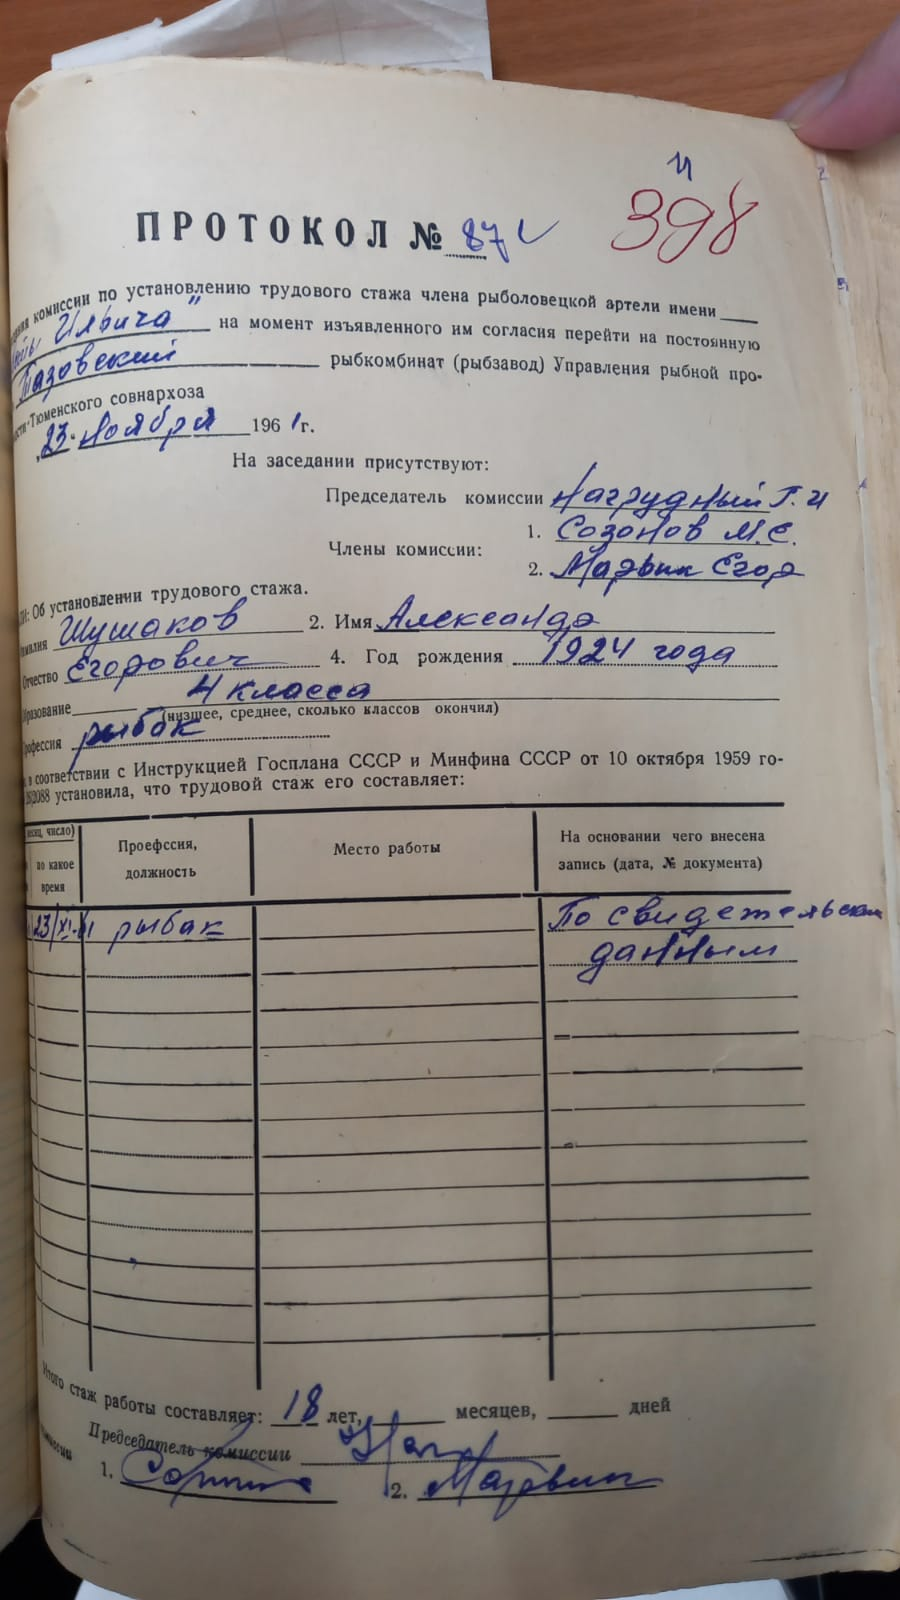 и
398
ПРОТОКОЛ № 87
комиссии по установлению трудового стажа члена рыболовецкой артели имени
Ильича" на момент изъявленного им согласия перейти на постоянную
Тазовский рыбкомбинат (рыбзавод) Управления рыбной про-
Тюменского совнархоза
„23" ноября 1961г.
На заседании присутствуют:
Председатель комиссии Нагрудный Г. И
Члены комиссии: 1. Созонов М.С.
2. Марьик Егор
Об установлении трудового стажа.
Шушаков 2. Имя Александр
Отчество Егорович 4. Год рождения 1924 года
4 класса
(низшее, среднее, сколько классов окончил)
рыбак
в соответствии с Инструкцией Госплана СССР и Минфина СССР от 10 октября 1959 го-
установила, что трудовой стаж его составляет:
месяц, число)
по какое время
Проефссия, должность
Место работы
На основании чего внесена запись (дата, № документа)
23/XI-61 рыбак По свидетельским
данным
Итого стаж работы составляет: 18 лет, месяцев, дней
Председатель комиссии
1. 2.